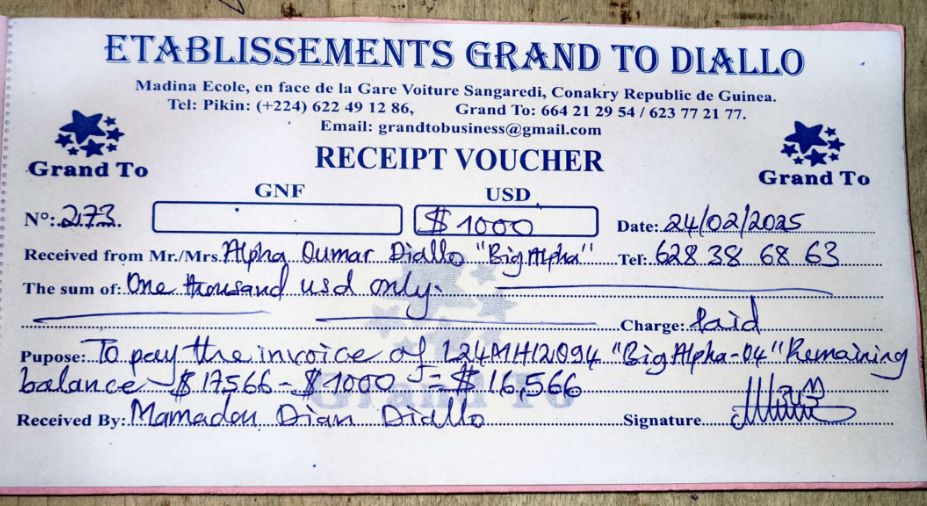 ETABLISSEMENTS GRAND TO DIALLO
Madina Ecole, en face de la Gare Voiture Sangaredi, Conakry Republic de Guinea.
Tel: Pikin: (+224) 622 49 12 86, Grand To: 664 21 29 54 / 623 77 21 77.
Email: grandtobusiness@gmail.com
Grand To RECEIPT VOUCHER Grand To
GNF USD
N°: 273. $ 1000 Date: 24/02/2025
Received from Mr./Mrs. Alpha Oumar Diallo "Big Alpha" Tel: 628 38 68 63
The sum of: One thousand usd only.
Charge: Paid
Pupose: To pay the invoice of 124MH12094 "Big Alpha-04" Remaining
balance $ 17566 - $ 1000 = $ 16,566
Grand To
Received By: Mamadou Dian Diallo Signature